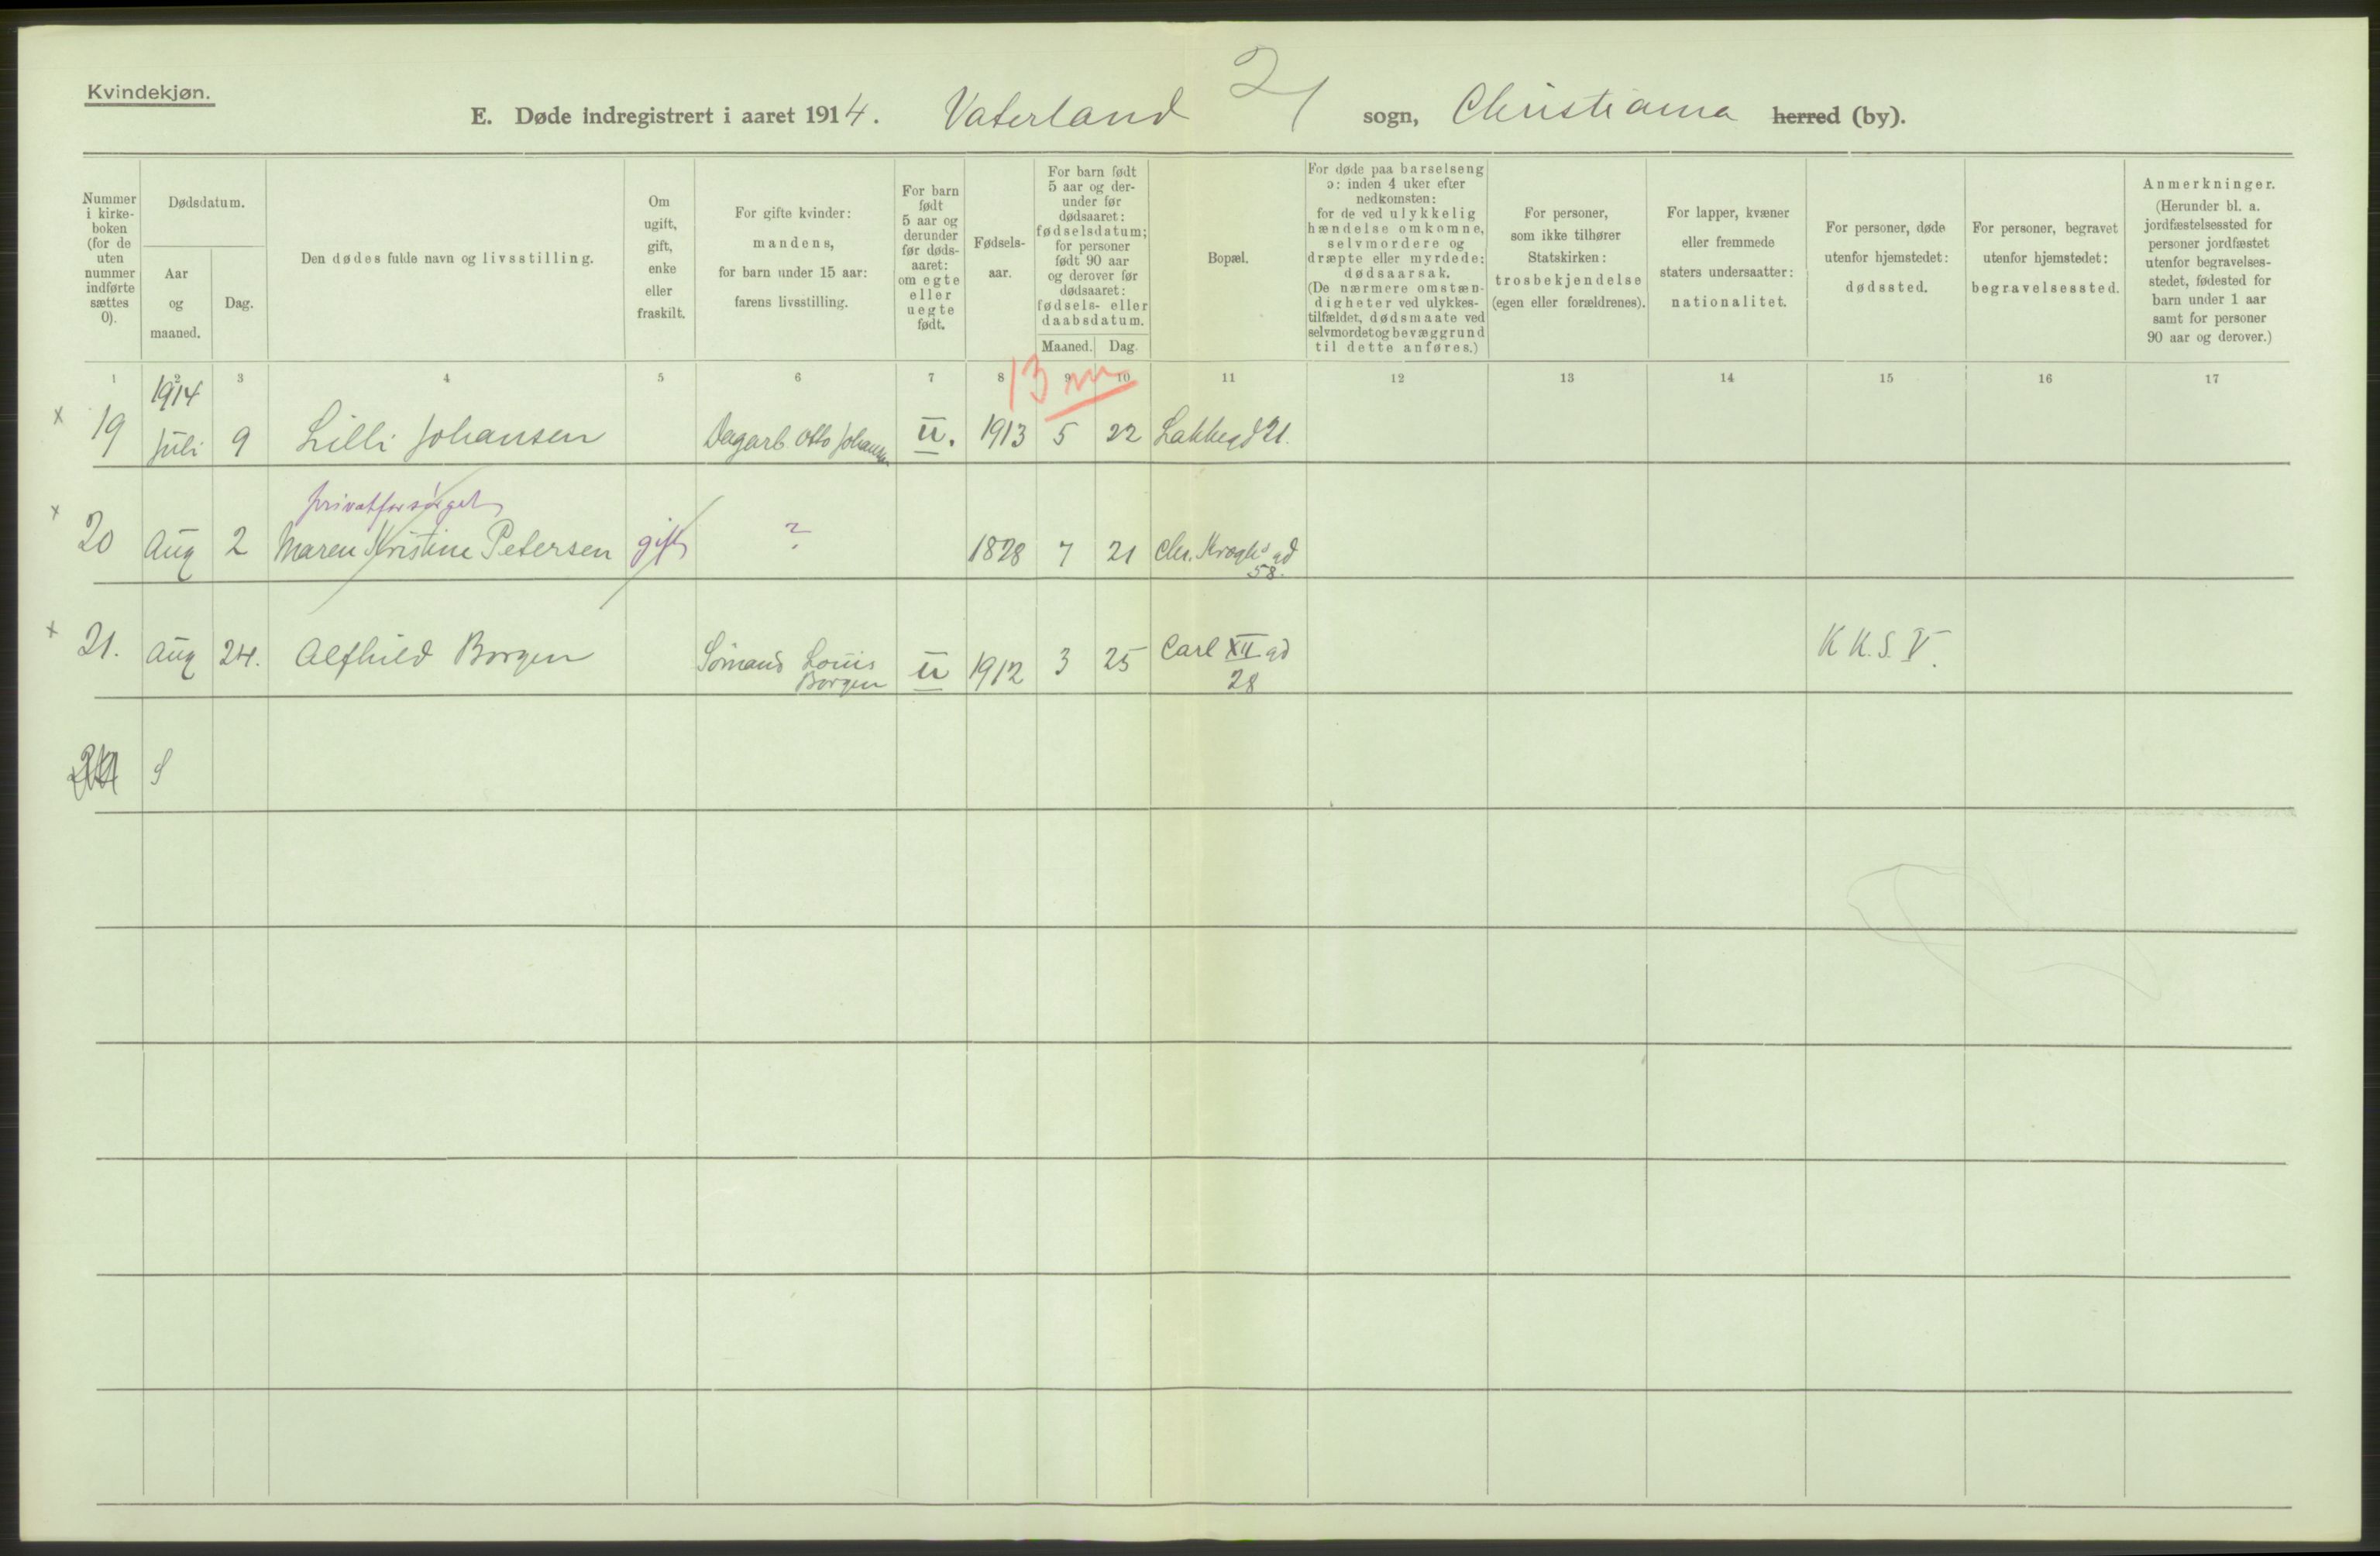 Kvindekjøn.
E. Døde indregistrert i aaret 1914. Vaterland 21 sogn, Christiania herred (by).
Nummer i kirke-boken (for de uten nummer indførte sættes 0).
Dødsdatum.
Aar og maaned.
Dag.
Den dødes fulde navn og livsstilling.
Om ugift, gift, enke eller fraskilt.
For gifte kvinder: mandens, for barn under 15 aar: farens livsstilling.
For barn født 5 aar og derunder før døds-aaret: om egte eller uegte født.
Fødsels-aar.
For barn født 5 aar og der-under før dødsaaret: fødselsdatum; for personer født 90 aar og derover før dødsaaret: fødsels- eller daabsdatum.
Maaned. Dag.
Bopæl.
For døde paa barselseng ɔ: inden 4 uker efter nedkomsten: for de ved ulykkelig hændelse omkomne, selvmordere og dræpte eller myrdede: dødsaarsak. (De nærmere omstæn-digheter ved ulykkes-tilfældet, dødsmaate ved selvmordet og bevæggrund til dette anføres.)
For personer, som ikke tilhører Statskirken: trosbekjendelse (egen eller forældrenes).
For lapper, kvæner eller fremmede staters undersaatter: nationalitet.
For personer, døde utenfor hjemstedet: dødssted.
For personer, begravet utenfor hjemstedet: begravelsessted.
Anmerkninger. (Herunder bl. a. jordfæstelsessted for personer jordfæstet utenfor begravelses-stedet, fødested for barn under 1 aar samt for personer 90 aar og derover.)
1 2 3 4 5 6 7 8 9 10 11 12 13 14 15 16 17
1914
13 m
x 19 Juli 9 Lilli Johansen Dagarb Otto Johansen u. 1913 5 22 Lakkegd 21.
privatforsørget
x 20 Aug 2 Maren Kristine Petersen gift ? 1828 7 21 Chr. Kroghs gd
58.
x 21. Aug 24. Alfhild Borgen Sømand Louis u 1912 3 25 Carl XII gd K K. S. V.
Borgen 28
S